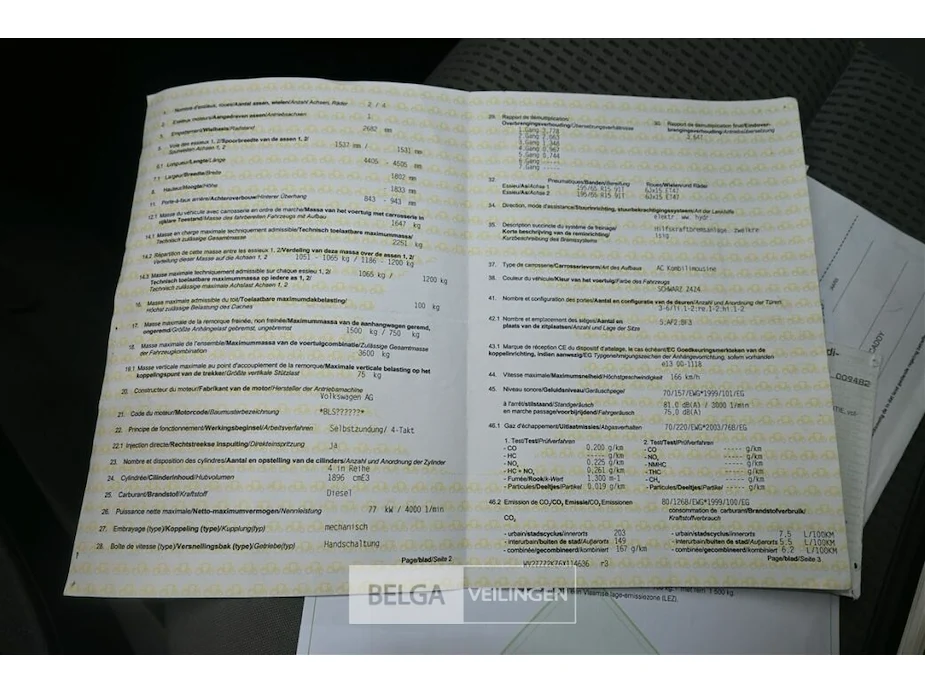 1. Nombre d'essieux, roues/Aantal assen, wielen/Anzahl Achsen, Räder 2 / 4
2. Essieux moteurs/Aangedreven assen/Antriebsachsen 1
3. Empattement/Wielbasis/Radstand 2682 mm
5. Voie des essieux 1, 2/Spoorbreedte van de assen 1, 2/ 1537 mm / 1531 mm
Spurweiten Achsen 1, 2
6.1 Longueur/Lengte/Länge 4405 - 4505 mm
7.1 Largeur/Breedte/Breite 1802 mm
8. Hauteur/Hoogte/Höhe 1833 mm
11. Porte-à-faux arrière/Achteroverbouw/Hinterer Überhang 843 - 943 mm
12.1 Masse du véhicule avec carrosserie en ordre de marche/Massa van het voertuig met carrosserie in
rijklare toestand/Masse des fahrbereiten Fahrzeugs mit Aufbau 1647 kg
14.1 Masse en charge maximale techniquement admissible/Technisch toelaatbare maximummassa/
Technisch zulässige Gesamtmasse 2251 kg
14.2 Répartition de cette masse entre les essieux 1, 2/Verdeling van deze massa over de assen 1, 2/
Verteilung dieser Masse auf die Achsen 1, 2 1051 - 1065 kg / 1186 - 1200 kg
14.3 Masse maximale techniquement admissible sur chaque essieu 1, 2/
Technisch toelaatbare maximummassa op iedere as 1, 2/ 1065 kg / 1200 kg
Technisch zulässige maximale Achslast Achsen 1, 2
16. Masse maximale admissible du toit/Toelaatbare maximumdakbelasting/
Höchst zulässige Belastung des Daches 100 kg
17. Masse maximale de la remorque freinée, non freinée/Maximummassa van de aanhangwagen geremd,
ongeremd/Größte Anhängelast gebremst, ungebremst 1500 kg / 750 kg
18. Masse maximale de l'ensemble/Maximummassa van de voertuigcombinatie/Zulässige Gesamtmasse
der Fahrzeugkombination 3600 kg
19.1 Masse verticale maximale au point d'accouplement de la remorque/Maximale verticale belasting op het
koppelingspunt van de trekker/Größte vertikale Stützlast 75 kg
20. Constructeur du moteur/Fabrikant van de motor/Hersteller der Antriebsmaschine
Volkswagen AG
21. Code du moteur/Motorcode/Baumusterbezeichnung *BLS??????*
22. Principe de fonctionnement/Werkingsbeginsel/Arbeitsverfahren Selbstzundung/ 4-Takt
22.1 Injection directe/Rechtstreekse inspuiting/Direkteinspritzung ja
23. Nombre et disposition des cylindres/Aantal en opstelling van de cilinders/Anzahl und Anordnung der Zylinder
4 in Reihe
24. Cylindrée/Cilinderinhoud/Hubvolumen 1896 cmE3
25. Carburant/Brandstof/Kraftstoff Diesel
26. Puissance nette maximale/Netto-maximumvermogen/Nennleistung 77 kW / 4000 1/min
27. Embrayage (type)/Koppeling (type)/Kupplung(typ) mechanisch
28. Boîte de vitesse (type)/Versnellingsbak (type)/Getriebe(typ) Handschaltung
Page/blad/Seite 2
29. Rapport de démultiplication/
Overbrengingsverhouding/Übersetzungsverhältnisse
1.Gang 3.778
2.Gang 2.063
3.Gang 1.348
4.Gang 0.967
5.Gang 0.744
6.Gang -----
7.Gang -----
30. Rapport de démultiplication final/Eindover-
brengingsverhouding/Antriebsübersetzung
3.647
32. Pneumatiques/Banden/Bereifung Roues/Wielen/und Räder
Essieu/As/Achse 1 195/65 R15 91T 6Jx15 ET47
Essieu/As/Achse 2 195/65 R15 91T 6Jx15 ET47
34. Direction, mode d'assistance/Stuurinrichting, stuurbekrachtigingssysteem/Art der Lenkhilfe
elektr. mw. hydr.
35. Description succincte du système de freinage/
Korte beschrijving van de reminrichting/ Hilfskraftbremsanlage, zweikre
Kurzbeschreibung des Bremssystems isig
37. Type de carrosserie/Carrosserievorm/Art des Aufbaus AC Kombilimousine
38. Couleur du véhicule/Kleur van het voertuig/Farbe des Fahrzeugs
SCHWARZ 2424
41. Nombre et configuration des portes/Aantal en configuration van de deuren/Anzahl und Anordnung der Türen
42.1 Nombre et emplacement des sièges/Aantal en
plaats van de zitplaatsen/Anzahl und Lage der Sitze 5;AF2;BF3
43.1 Marque de réception CE du dispositif d'attelage, le cas échéant/EC Goedkeuringsmerkteken van de
koppelinrichting, indien aanwezig/EG Typgenehmigungszeichen der Anhängevorrichtung, sofern vorhanden
e13 00-1118
44. Vitesse maximale/Maximumsnelheid/Höchstgeschwindigkeit 166 km/h
45. Niveau sonore/Geluidsniveau/Geräuschpegel 70/157/EWG*1999/101/EG
à l'arrêt/stilstaand/Standgeräusch 81,0 dB(A) / 3000 1/min
en marche passage/voorbijrijdend/Fahrgeräusch 75,0 dB(A)
46.1 Gaz d'échappement/Uitlaatemissies/Abgasverhalten 70/220/EWG*2003/76B/EG
1. Test/Test/Prüfverfahren 2. Test/Test/Prüfverfahren
- CO 0.200 g/km - CO ----- g/km
- HC ----- g/km - NOx ----- g/km
- NOx 0.225 g/km - NMHC ----- g/km
- HC + NOx 0.261 g/km - THC ----- g/km
- Fumée/Rook/k-Wert 1.300 m-1 - CH4 ----- g/km
- Particules/Deeltjes/Partikel 0.019 g/km - Particules/Deeltjes/Partikel ----- g/km
46.2 Emission de CO2/CO2 Emissie/CO2 Emissionen 80/1268/EWG*1999/100/EG
CO2 consommation de carburant/Brandstofverbruik/
Kraftstoffverbrauch
- urbain/stadscyclus/innerorts 203 - urbain/stadscyclus/innerorts 7.5 L/100KM
- interurbain/buiten de stad/Außerorts 149 - interurbain/buiten de stad/Außerorts 5.5 L/100KM
- combinée/gecombineerd/kombiniert 167 g/km - combinée/gecombineerd/kombiniert 6.2 L/100KM
Page/blad/Seite 3
r3
BELGA VEILINGEN
CADDY